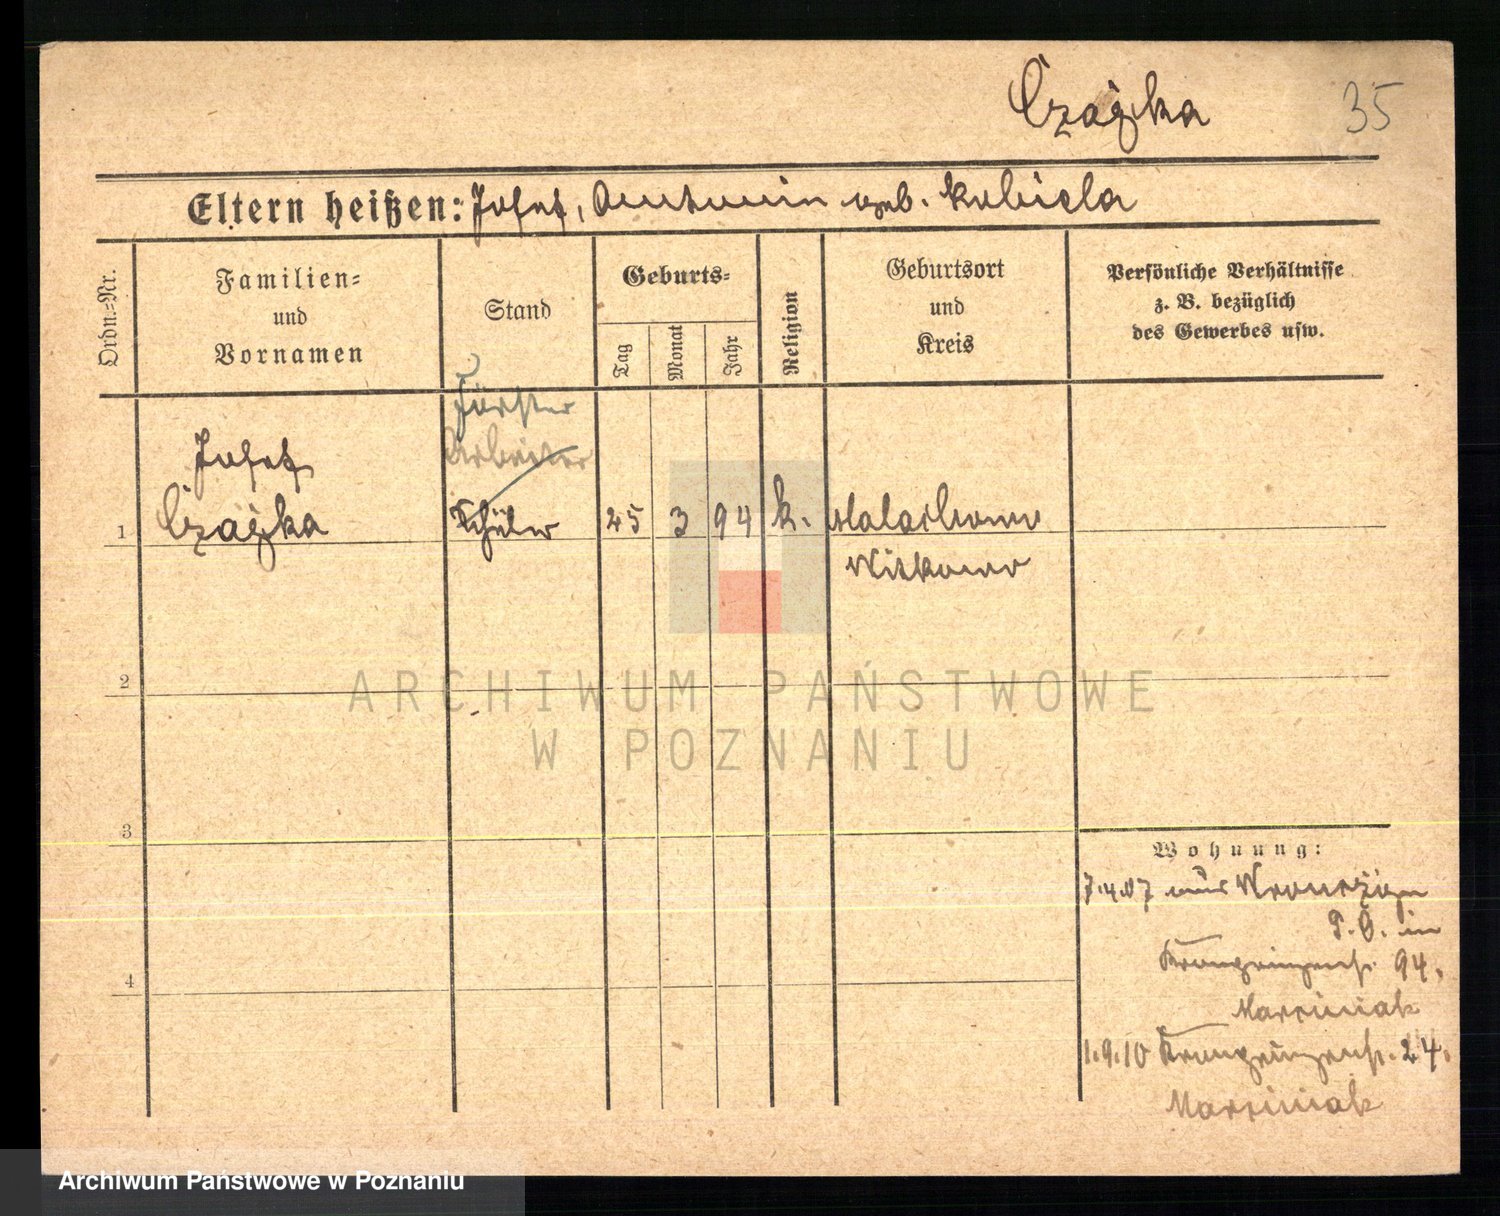 Czajka 35
Eltern heißen: Josef, Antonin geb. Kubiela
Ordn.=Nr.
Familien=
und
Vornamen
Stand
Geburts=
Tag
Monat
Jahr
Religion
Geburtsort
und
Kreis
Persönliche Verhältnisse
z. B. bezüglich
des Gewerbes usw.
Förster
Arbeiter
Josef
1 Czajka Schüler 25 3 94 k. Malachowo
Witkowo
2
ARCHIWUM PAŃSTWOWE
W POZNANIU
3
Wohnung:
7.4.07 aus
in
Kronprinzenst. 94.
Marciniak
4
1.9.10 Kronprinzenst. 24.
Marciniak
Archiwum Państwowe w Poznaniu